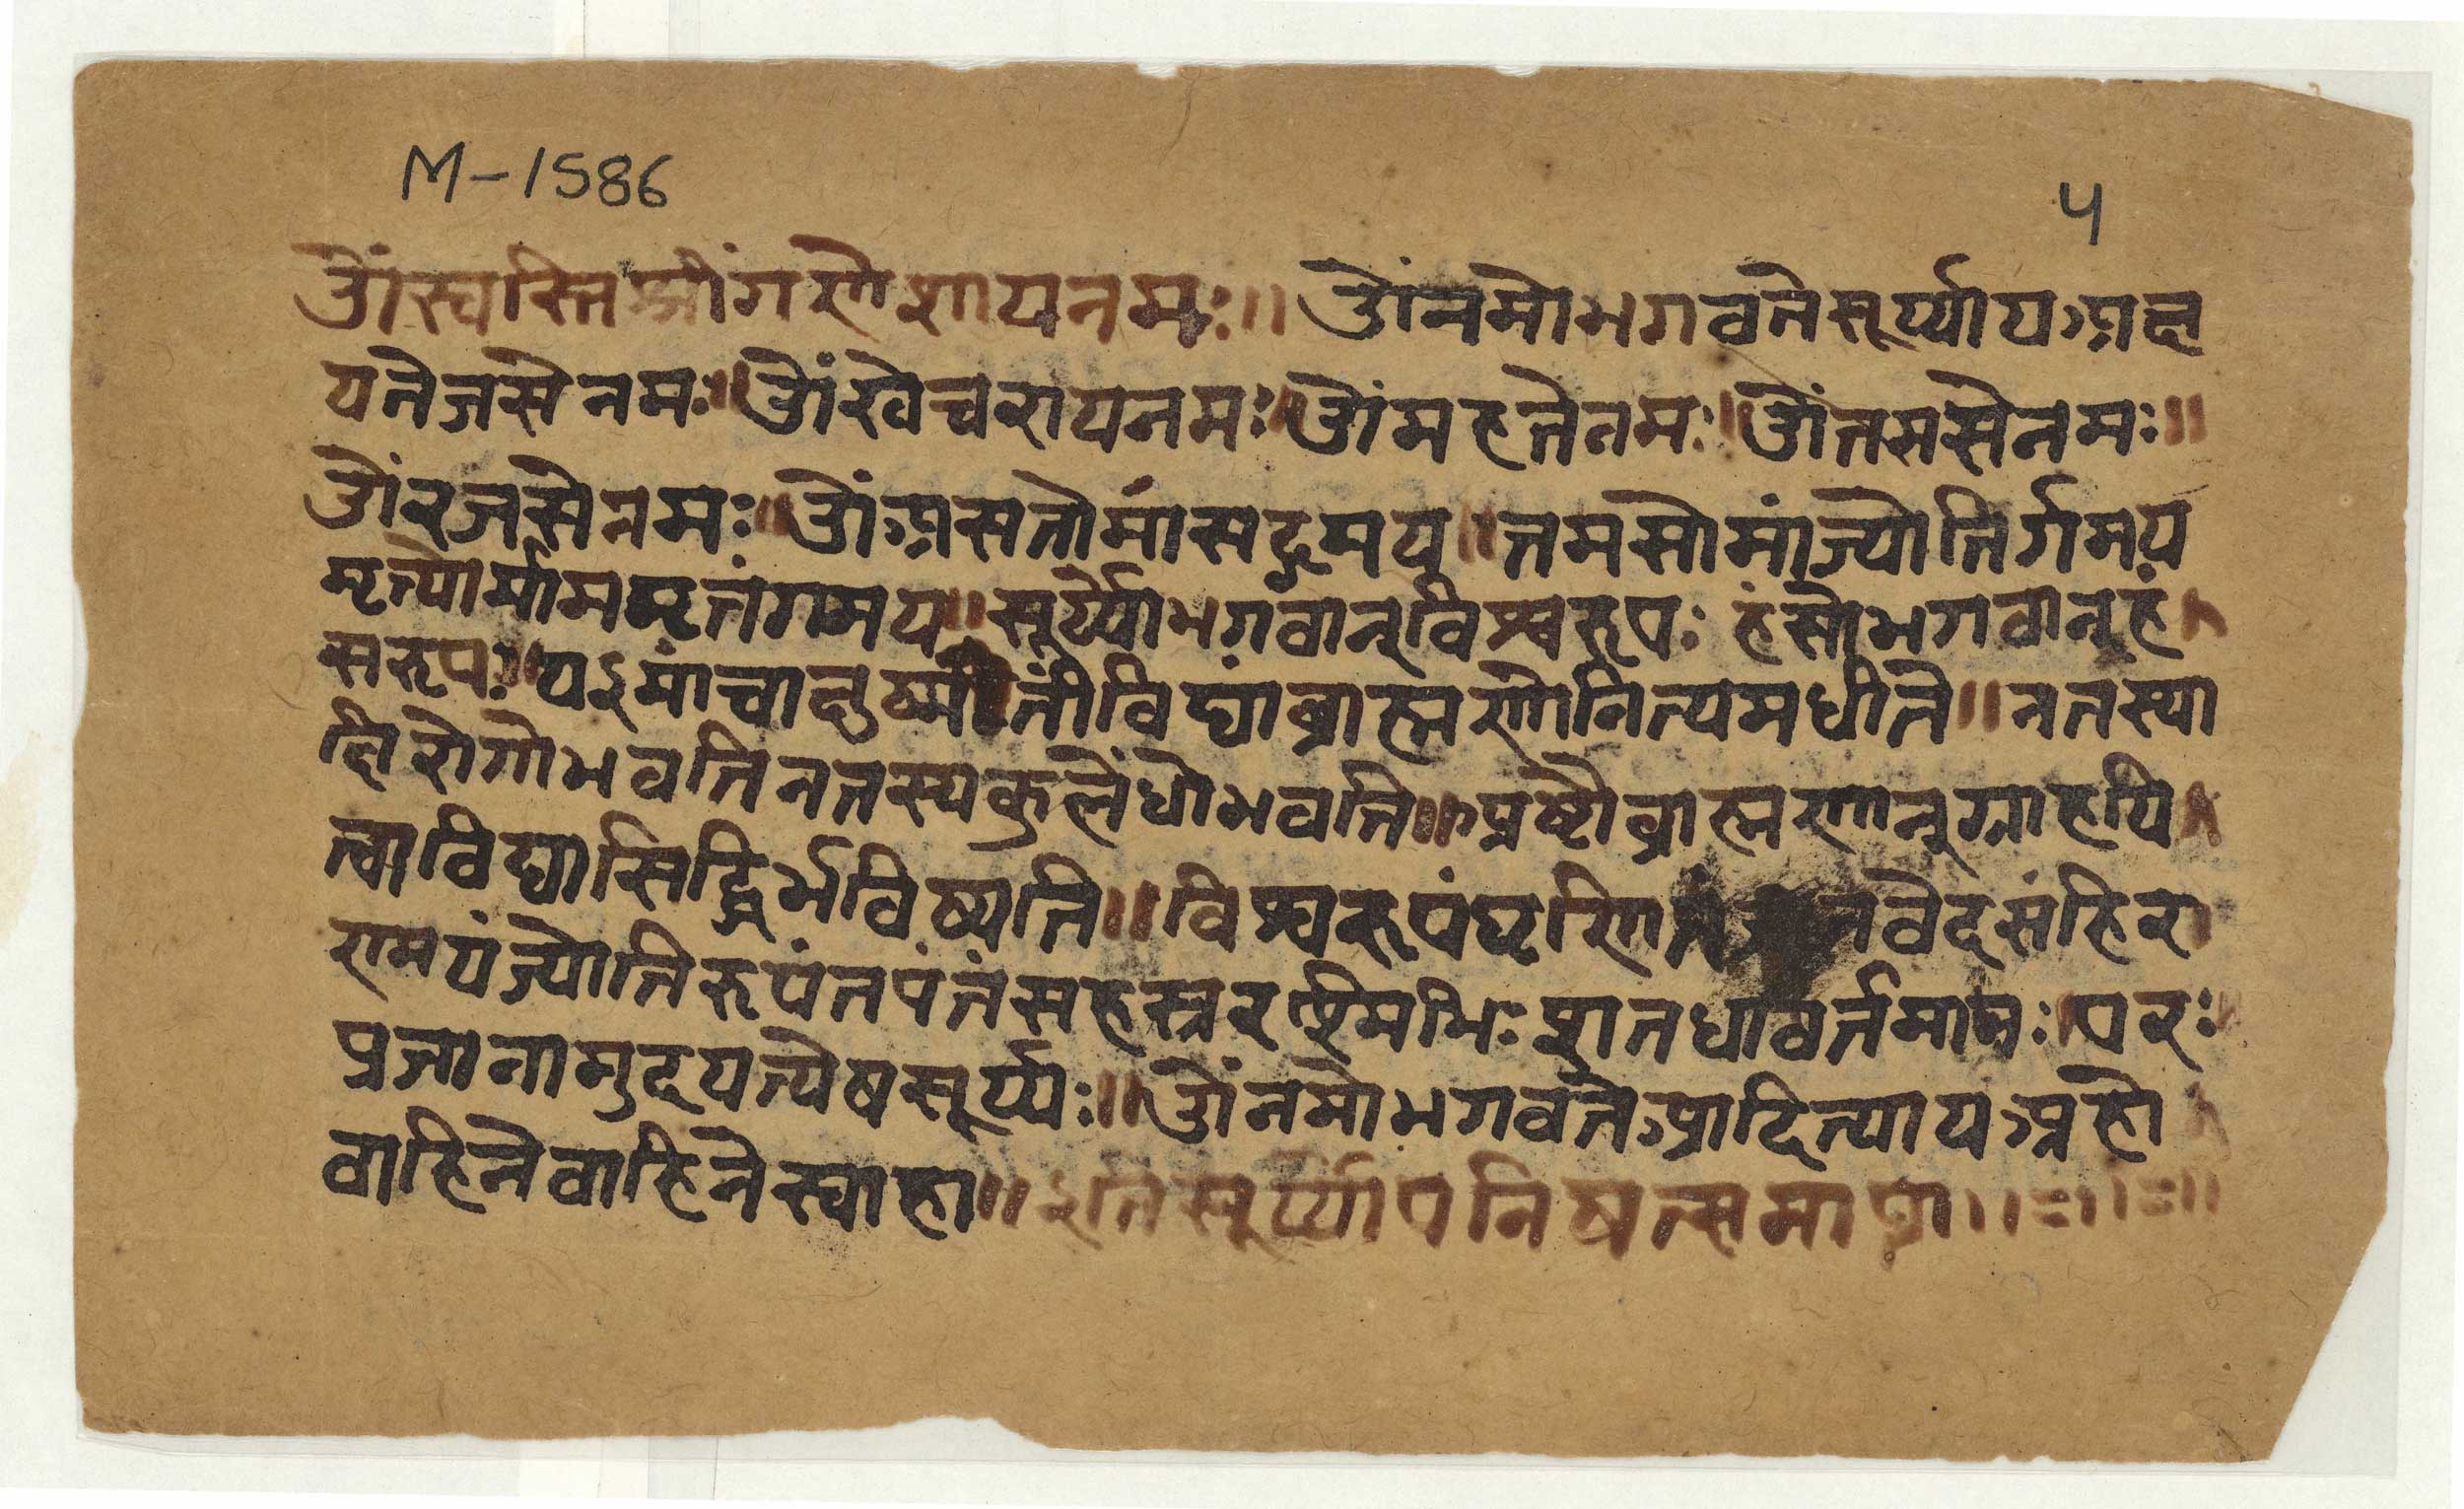 M-1586
५
ओंस्वस्तिश्रीगणेशायनमः॥ ओंनमोभगवतेसूर्य्यायअक्ष
यतेजसेनमः॥ओंखेचरायनमः॥ओंमहतेनमः॥ओंतमसेनमः॥
ओंरजसेनमः॥ओंअसतोर्मासद्गमय॥तमसोमांज्योतिर्गमय
मृत्योर्मामममृतंगमय॥सूर्य्योभगवान्विश्वरूपः हंसोभगवान्हं
सरूपः॥यइमांचाक्षुष्मतींविद्यांब्राह्मणोनित्यमधीते॥नतस्या
क्षिरोगोभवतिनतस्यकुलेंधोभवति॥अष्टौब्राह्मणान्ग्राहयि
त्वाविद्यासिद्धिर्भविष्यति॥विश्वरूपंघृणिनं तवेदसंहिर
ण्मयंज्योतिरूपंतपंतंसहस्ररश्मिभिःशतधावर्तमानः॥परः
प्रजानामुदयत्येषसूर्य्यः॥ओंनमोभगवतेआदित्यायअहो
वाहिनेवाहिनेस्वाहा॥इतिसूर्य्योपनिषत्समाप्ता॥=॥=॥